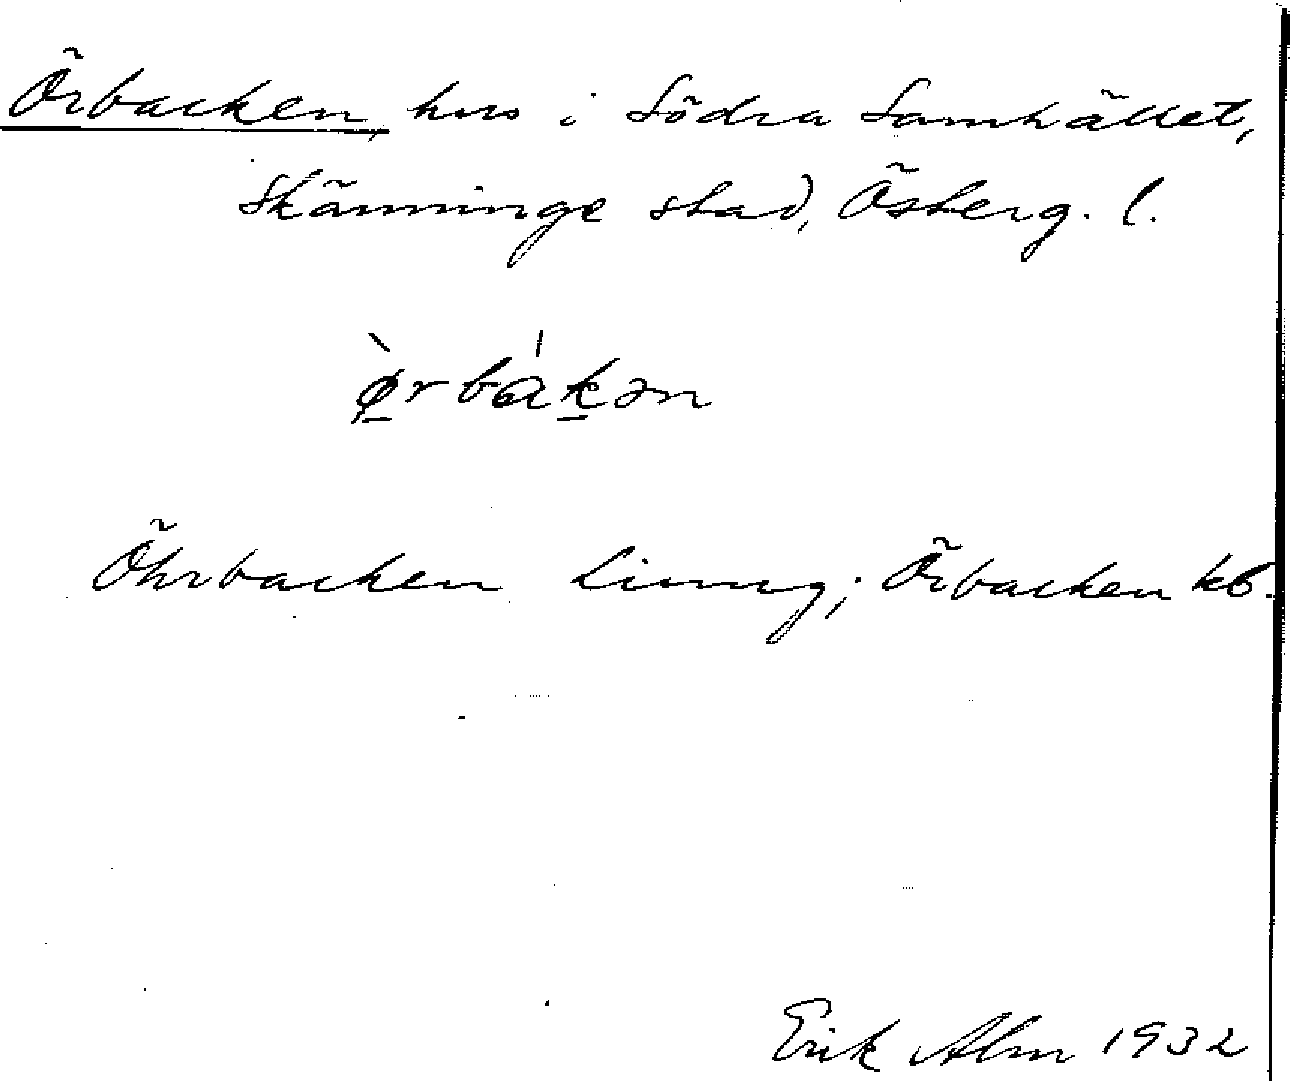 Örbacken, hus i Södra Samhället,
Skänninge stad, Österg. l.
ø̀rbákən
Öhrbacken Linnrg; Örbacken kb.
Erik Alm 1932